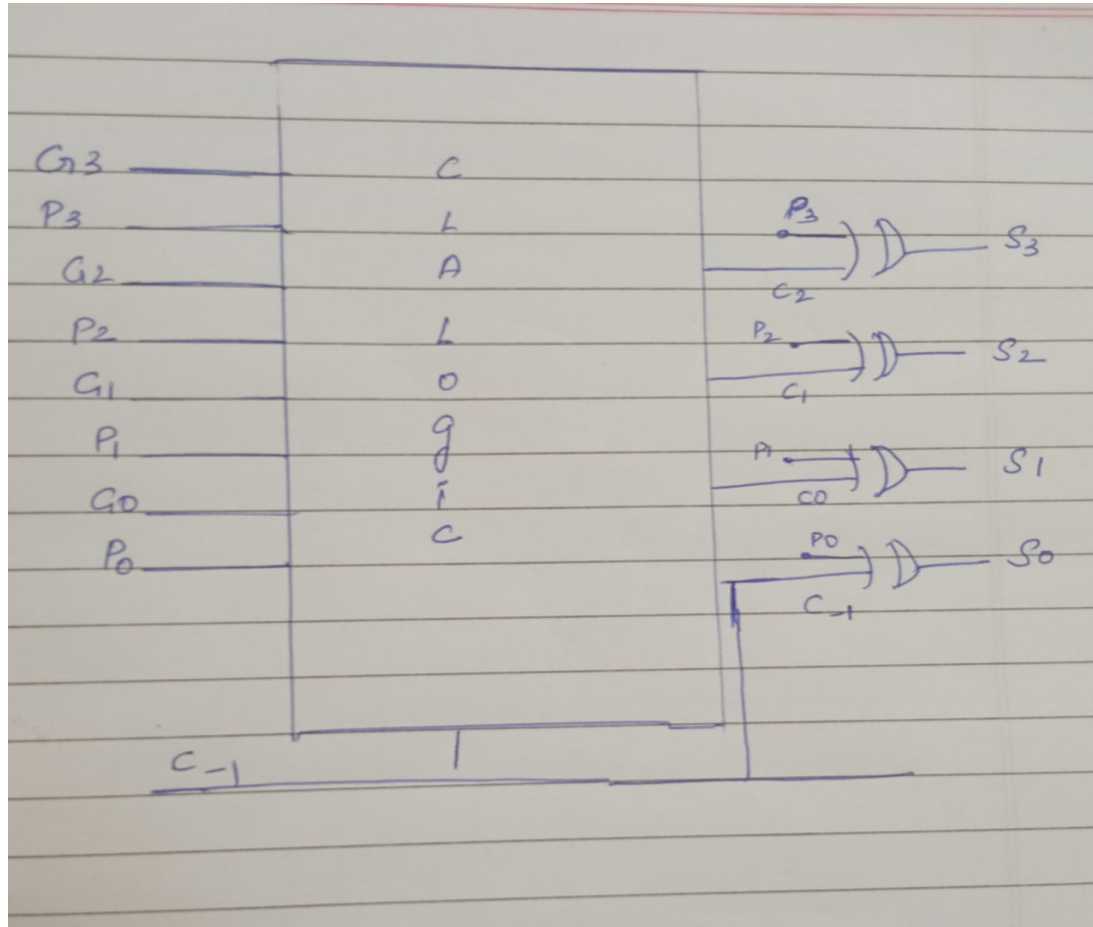 G3
P3
G2
P2
G1
P1
G0
P0
C
L
A
L
o
g
i
c
P3
C2
S3
P2
C1
S2
P1
C0
S1
P0
C-1
S0
C-1